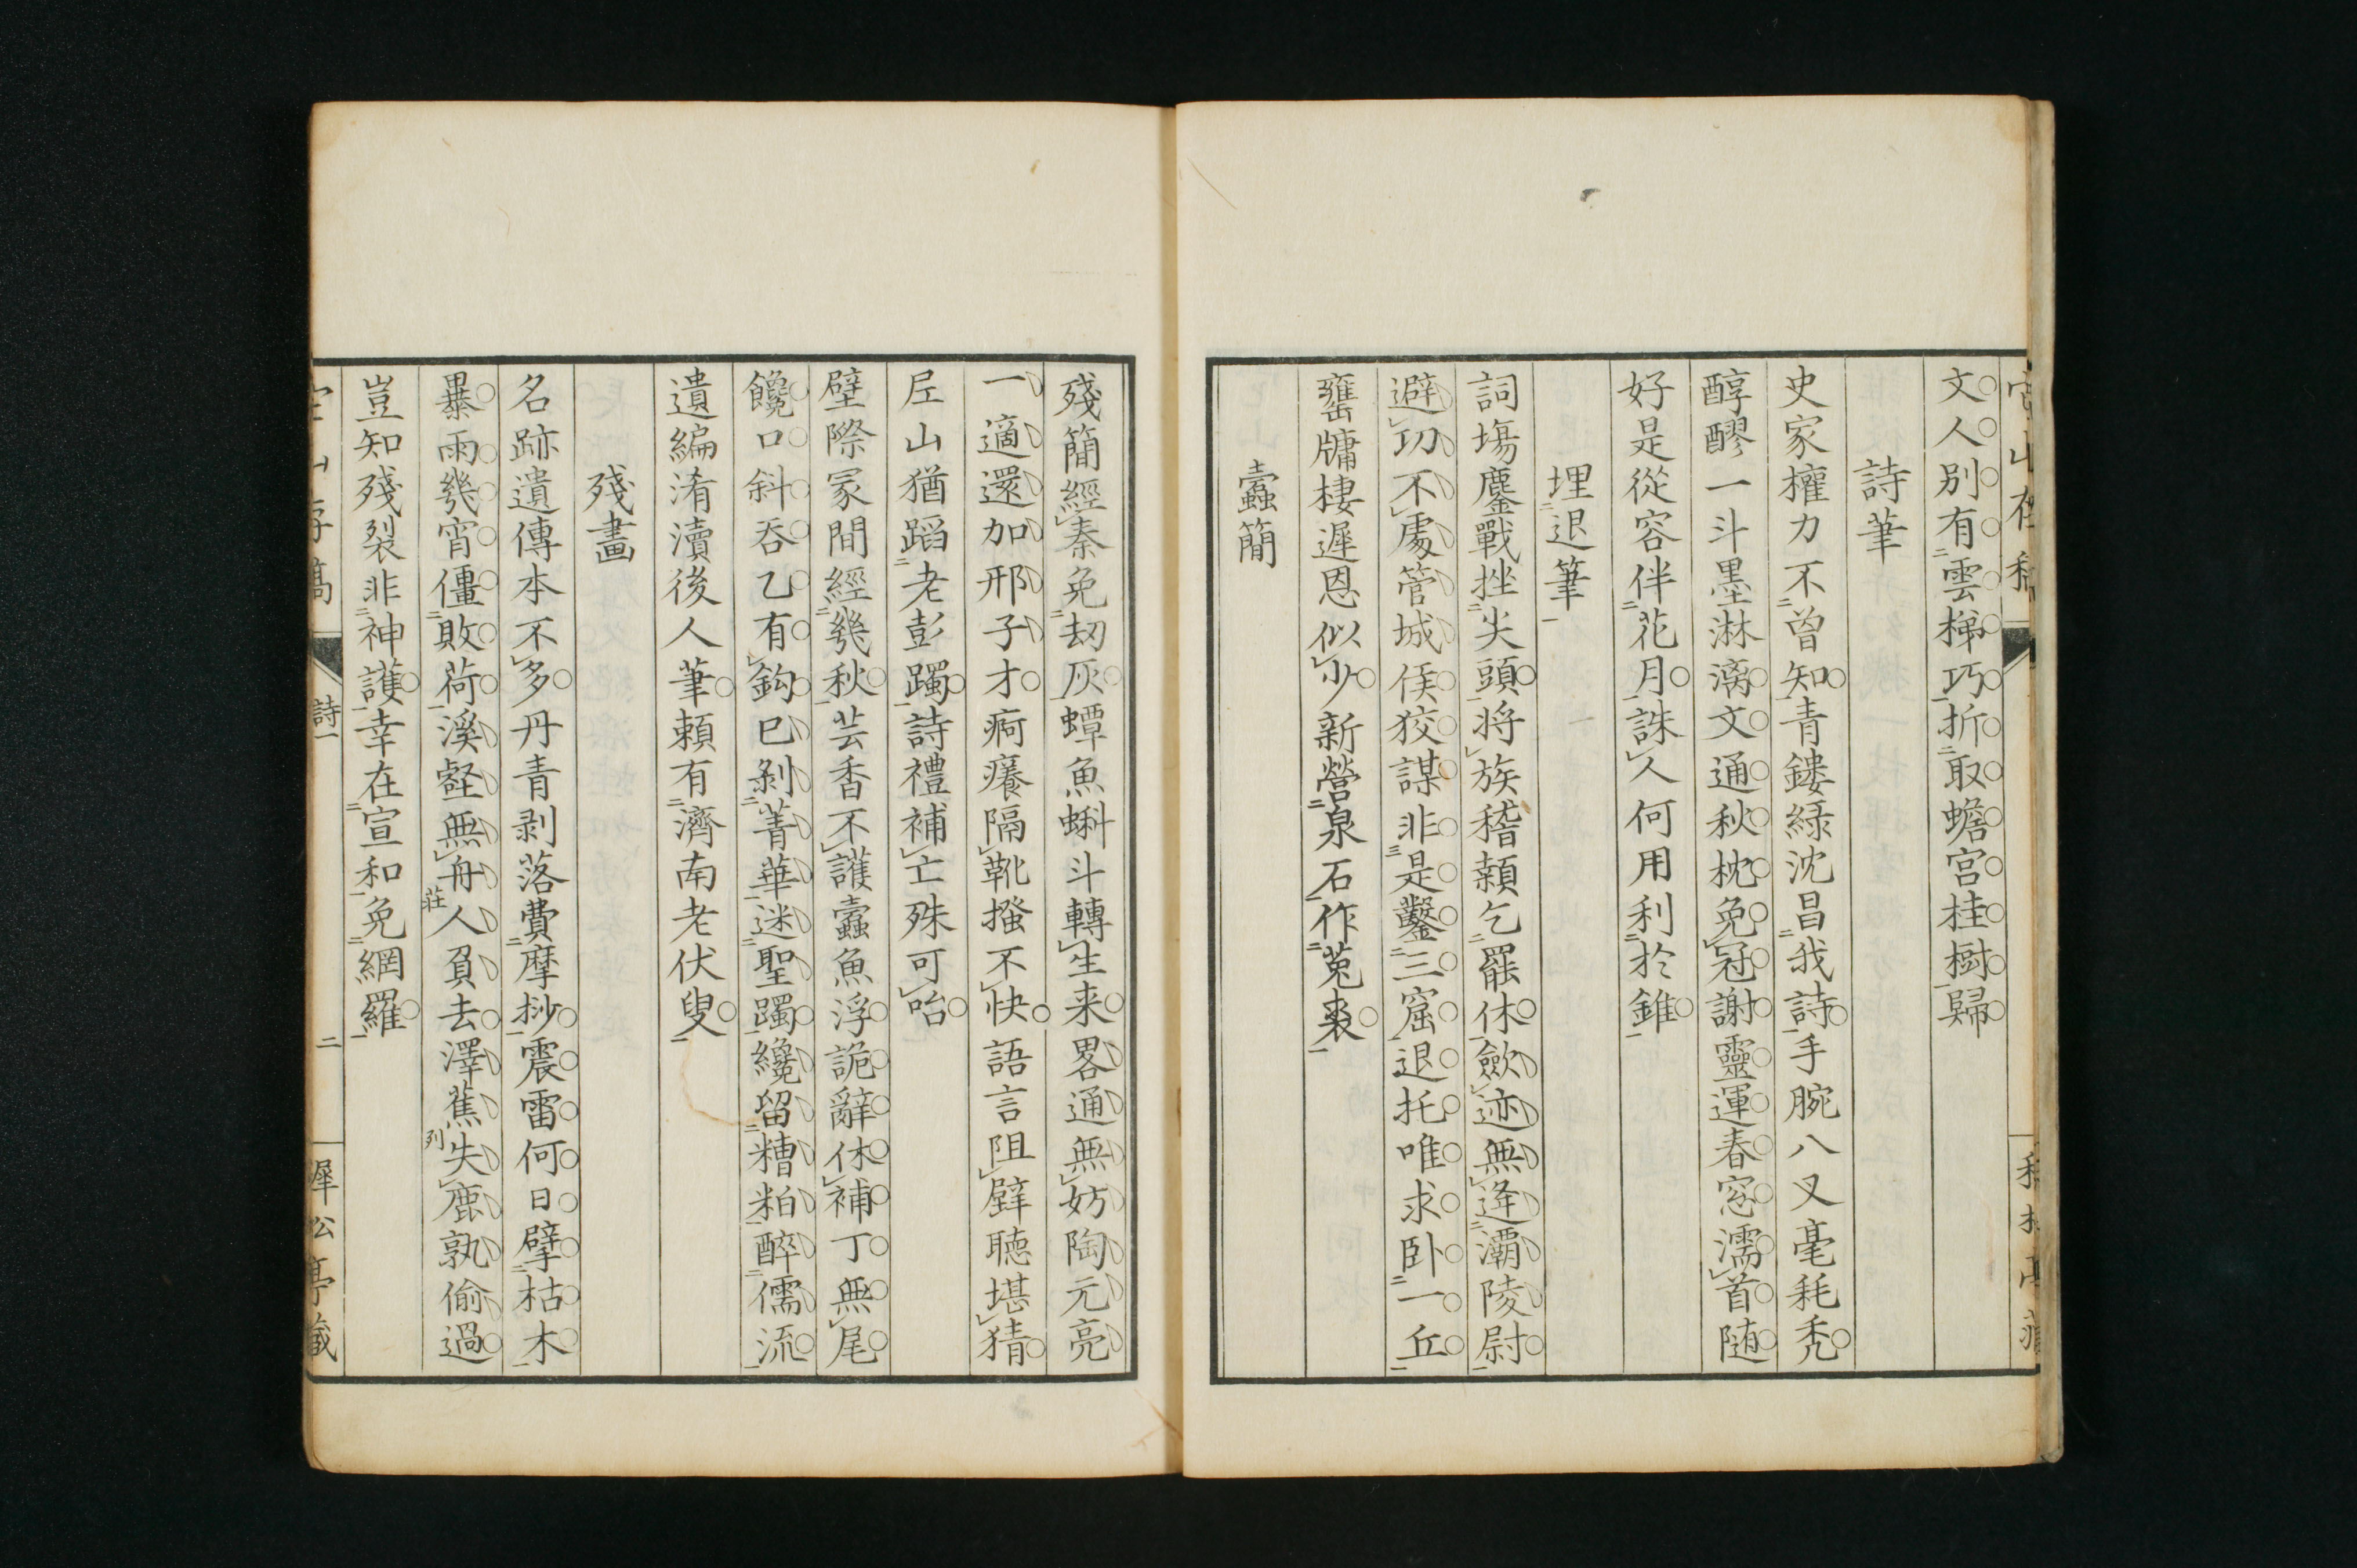 文人別有雲梯巧折取蟾宮桂樹歸
詩筆
史家權力不曾知青鏤綠沈昌我詩手腕八叉毫耗禿
醇醪一斗墨淋漓文通秋枕免冠謝靈運春窓濡首随
好是從容伴花月誅人何用利於錐
埋退筆
詞塲鏖戰挫尖頭将族稽顙乞罷休斂迹無逢灞陵尉
避功不處管城侯狡謀非是鑿三窟退托唯求卧一丘
甕牖棲遲恩似少新營泉石作菟裘
蠧簡
殘簡經秦免刧灰蟫魚蝌斗轉生来畧通無妨陶元亮
一適還加邢子才疴癢隔靴搔不快語言阻壁聴堪猜
丘山猶蹈老彭躅詩禮補亡殊可咍
壁際冢間經幾秋芸香不護蠧魚浮詭辭休補丁無尾
饞口斜呑乙有鈎巳剝菁華迷聖躅纔留糟粕醉儒流
遺編淆瀆後人筆頼有濟南老伏叟
殘畫
名跡遺傳本不多丹青剥落費摩挱震雷何日擘枯木
暴雨幾宵僵敗荷溪壑無舟人負去澤蕉失鹿孰偷過
莊
列
豈知殘裂非神護幸在宣和免網羅
詩一
二
犀公亭藏